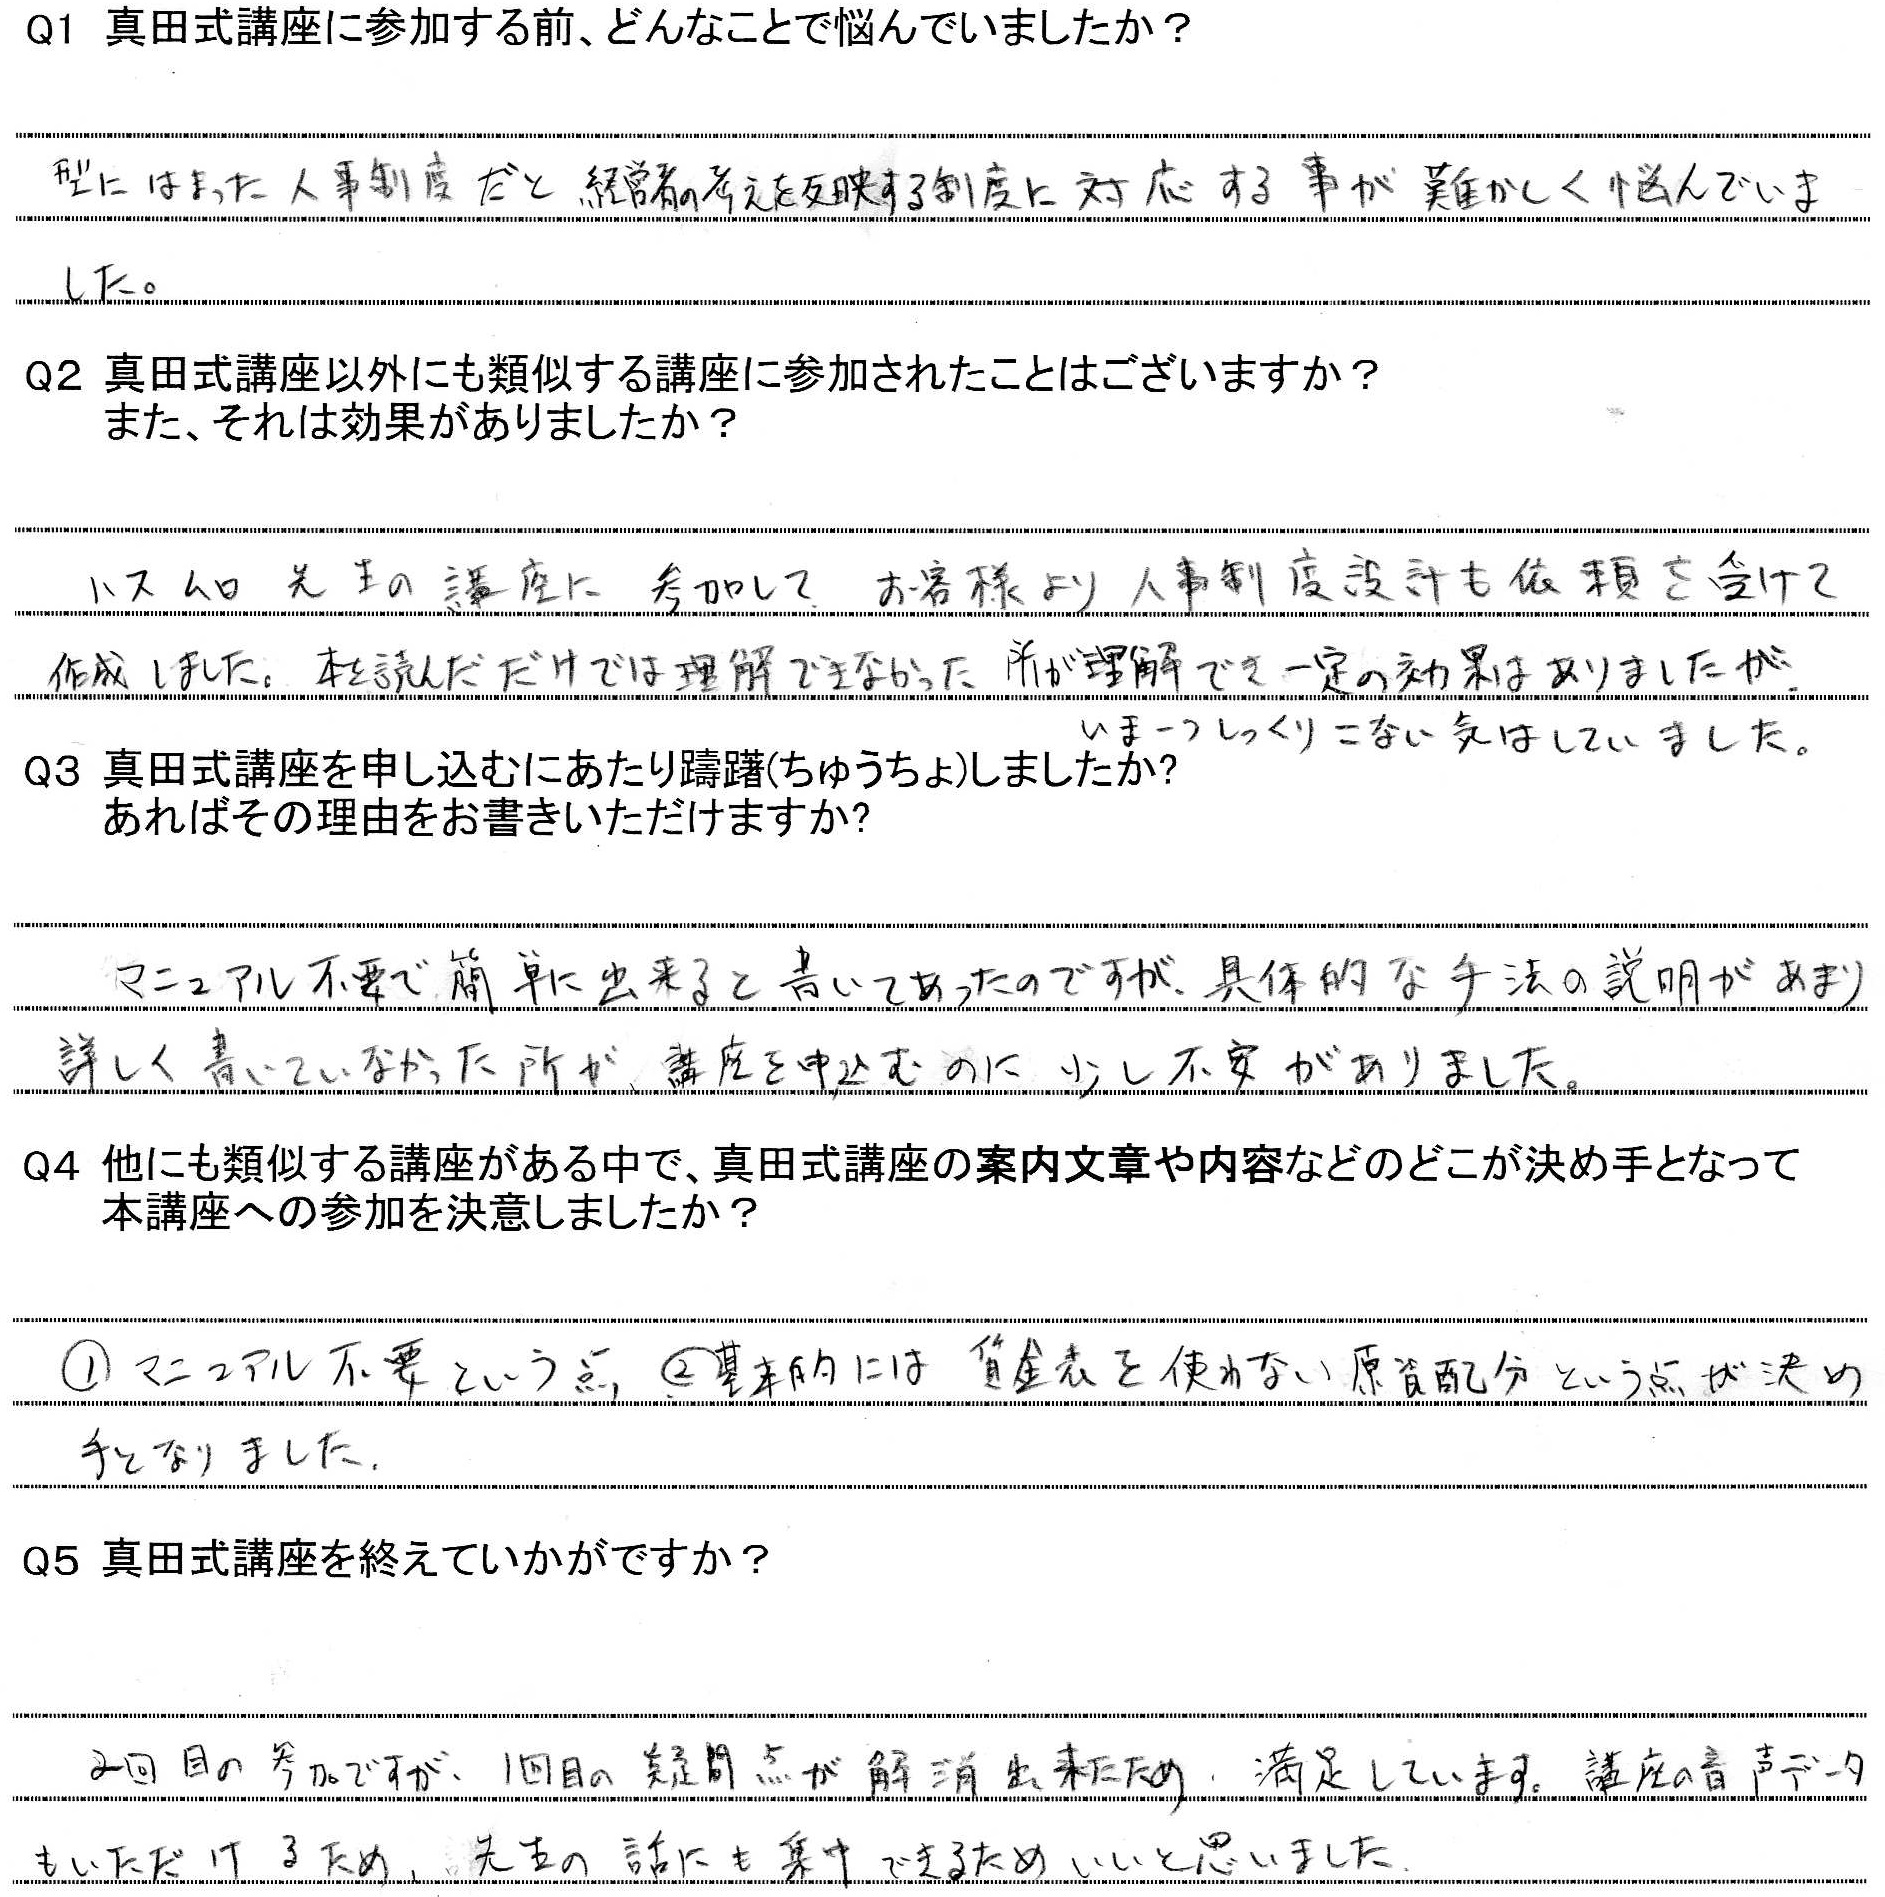 Q1 真田式講座に参加する前、どんなことで悩んでいましたか？
型にはまった人事制度だと経営者の考えを反映する制度に対応する事が難かしく悩んでいま
した。
Q2 真田式講座以外にも類似する講座に参加されたことはございますか？
また、それは効果がありましたか？
ハスムロ先生の講座に参加して、お客様より人事制度設計も依頼を受けて
作成しました。本を読んだだけでは理解できなかった所が理解でき一定の効果はありましたが、
いま一つしっくりこない気はしていました。
Q3 真田式講座を申し込むにあたり躊躇(ちゅうちょ)しましたか?
あればその理由をお書きいただけますか?
マニュアル不要で簡単に出来ると書いてあったのですが、具体的な手法の説明があまり
詳しく書いていなかった所が、講座を申込むのに少し不安がありました。
Q4 他にも類似する講座がある中で、真田式講座の案内文章や内容などのどこが決め手となって
本講座への参加を決意しましたか？
①マニュアル不要という点、②基本的には賃金表を使わない原資配分という点が決め
手となりました。
Q5 真田式講座を終えていかがですか？
2回目の参加ですが、1回目の疑問点が解消出来たため、満足しています。講座の音声データ
もいただけるため、先生の話にも集中できるためいいと思いました。